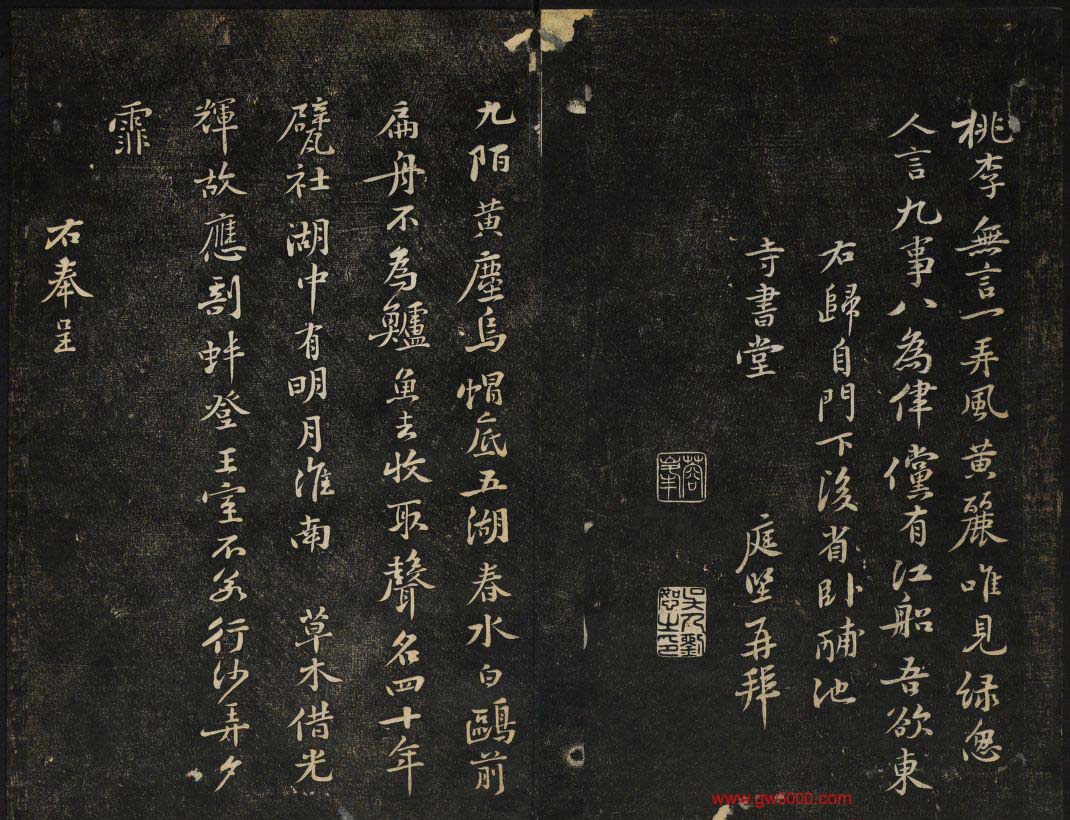 桃李無言一再風黄麗唯見緑怱
人言九事八為律儻有江船吾欲東
右歸自門下後省卧酺池
寺書堂 庭堅再拜
蓉峯
吳人劉恕之印
九陌黄塵烏帽底五湖春水白鷗前
扁舟不為鱸魚去收取聲名四十年
甓社湖中有明月淮南 草木借光
輝故應剖蚌登王室不若行沙弄夕
霏
右奉呈
www.gw5000.com